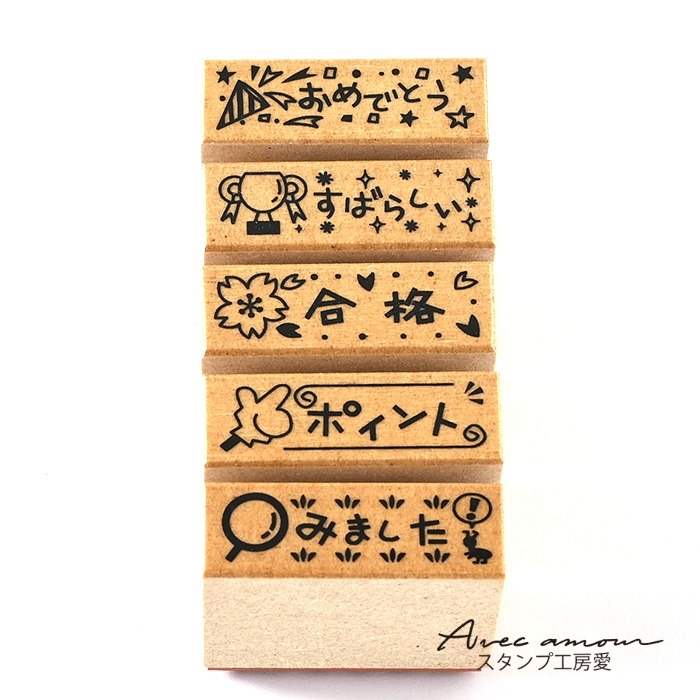 おめでとう
すばらしい
合格
ポイント
みました
!
Avec amour
スタンプ工房愛